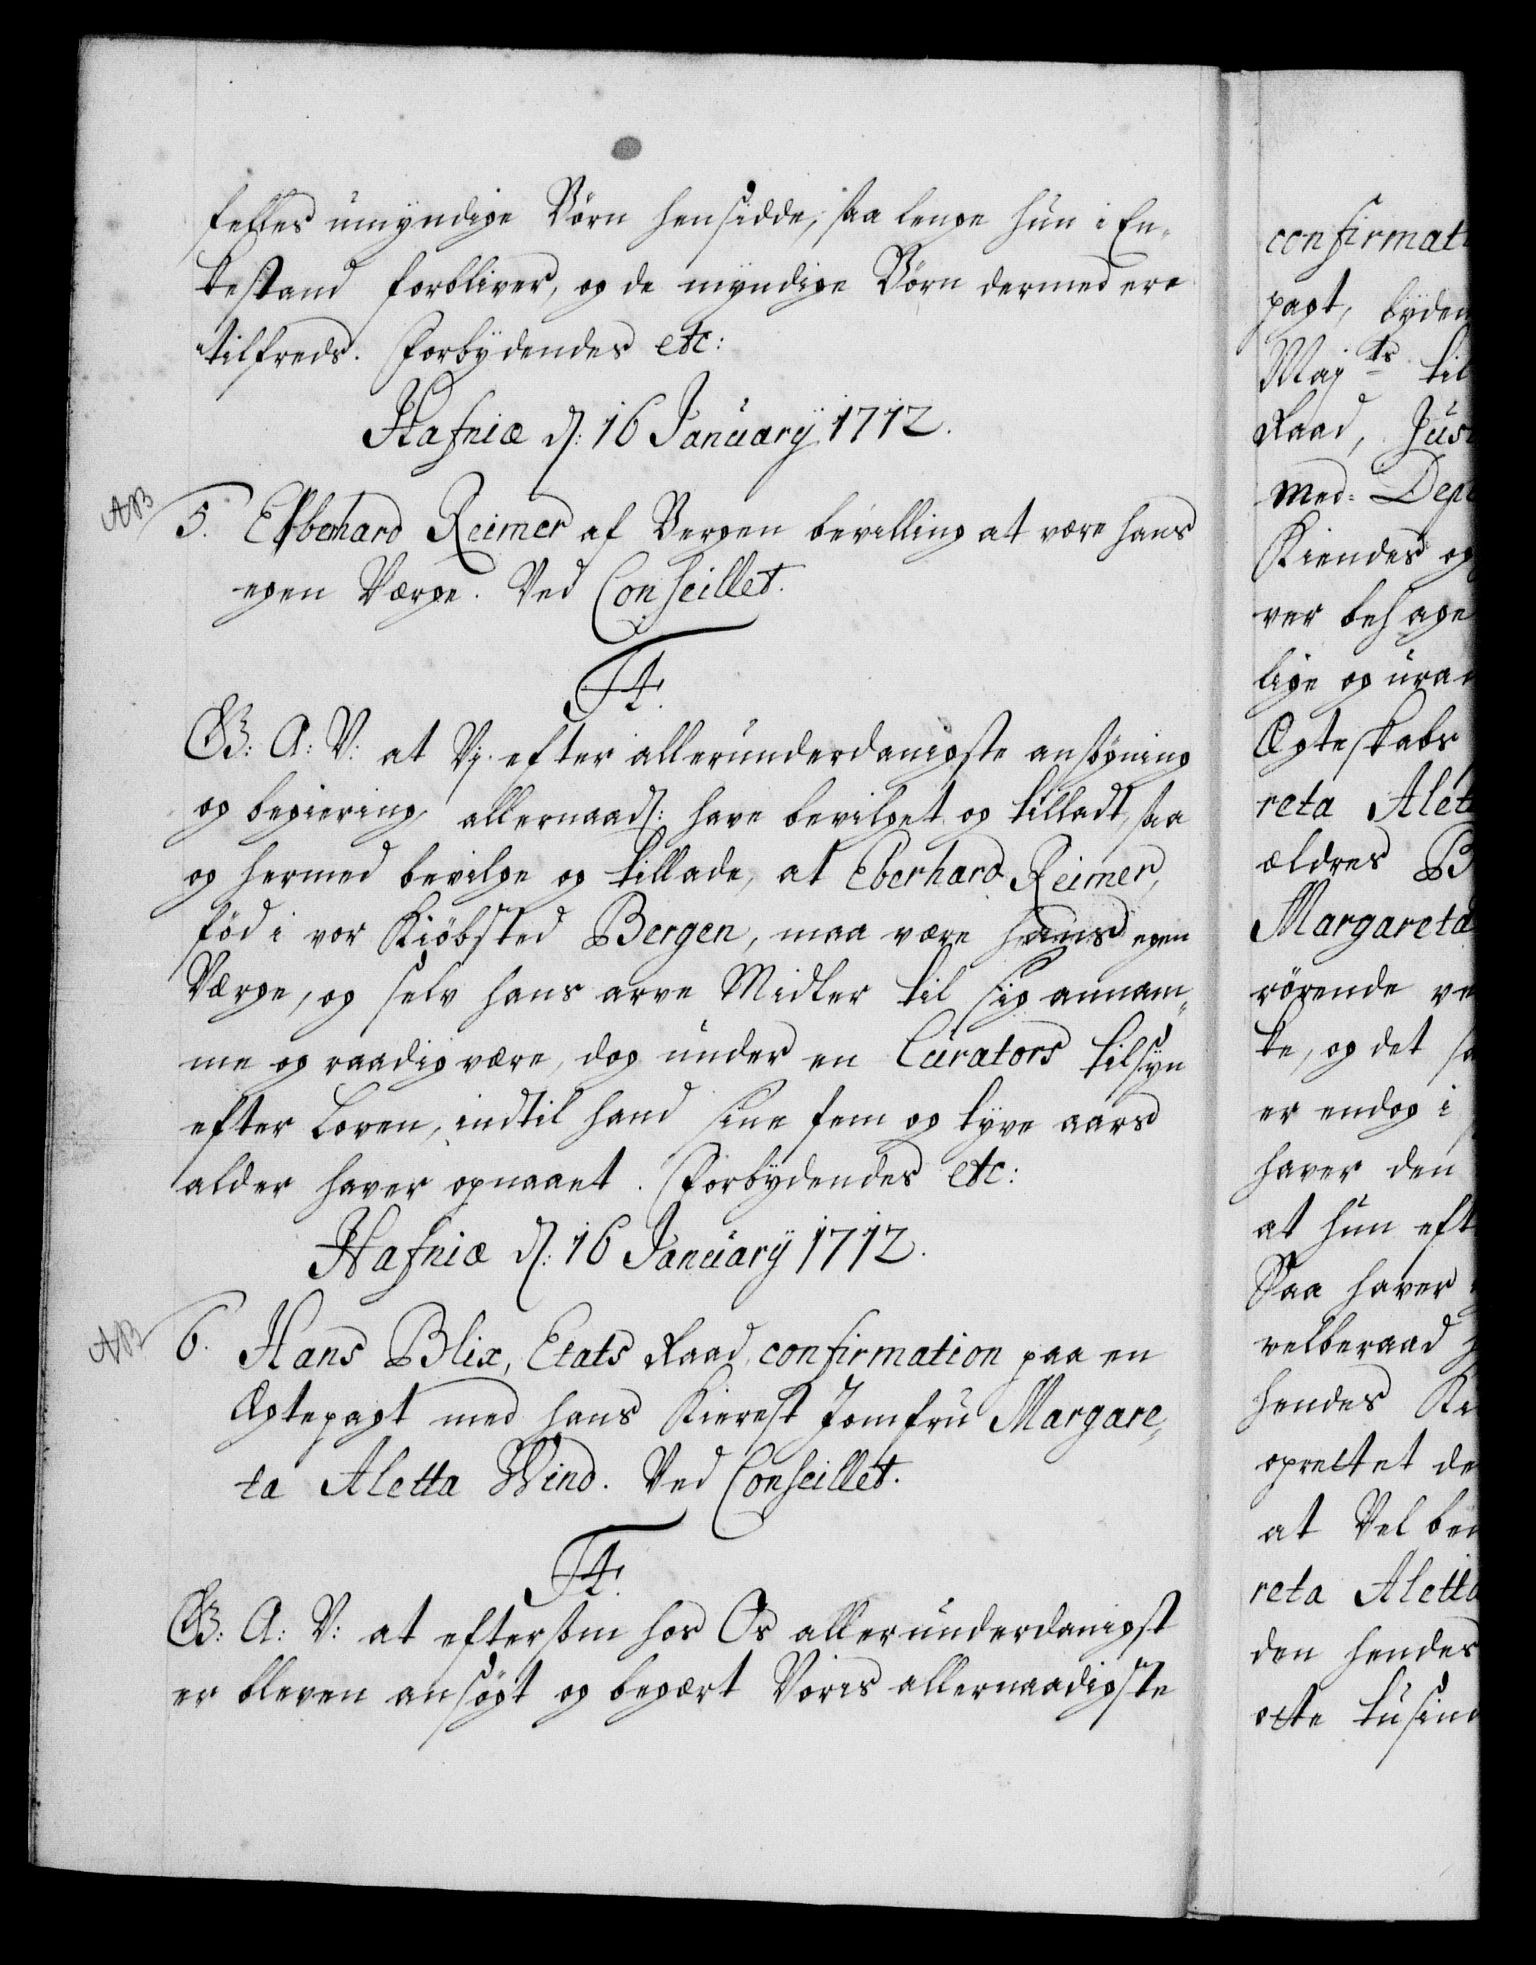 felles umÿndige Börn hensidde, saa lenge hun i En-
kestand forbliver, og de mÿndige Börn dermed ere
tilfreds. Forbÿdendes etc:
Hafniæ d: 16 Januarÿ 1712.
AB
5. Eberhard Reimer af Bergen bevilling at være hans
egen Værge. Ved Conseillet.
F4.
G: A: V: at Vj efter allerunderdanigste ansögning
og begiering allernaad: have bevilget og tilladt, saa
og hermed bevilge og tillade, at Eberhard Reimer,
föd i vor Kiöbsted Bergen, maa være hans egen
Værge, og selv hans arve Midler til sig annam-
me og raadig være, dog under en Curators tilsÿn
efter Loven, indtil hand sine fem og tÿve aars
alder haver opnaaet. Forbÿdendes etc:
Hafniæ d: 16 Januarÿ 1712.
AB
6. Hans Blix, Etats Raad, confirmation paa en
Ægtepagt med hans Kierest Jomfru Margare-
ta Aletta Wind. Ved Conseillet.
F4.
G: A: V: at eftersom hos Os allerunderdanigst
er bleven ansögt og begært Voris allernaadigste
confirmati
pagt, bÿden
Majts til
Raad, Jus
Med: Dep
Kiendes og
ver behage
lige og
Ægteskabs
reta Alet
ældres B
Margareta
rörende ve
te, og det sa
er endog i
haver den
at hun eft
Saa haver
velberaad
hendes Ki
oprettet de
at Vel bÿ
reta Aletta
den hendes
otte tusind